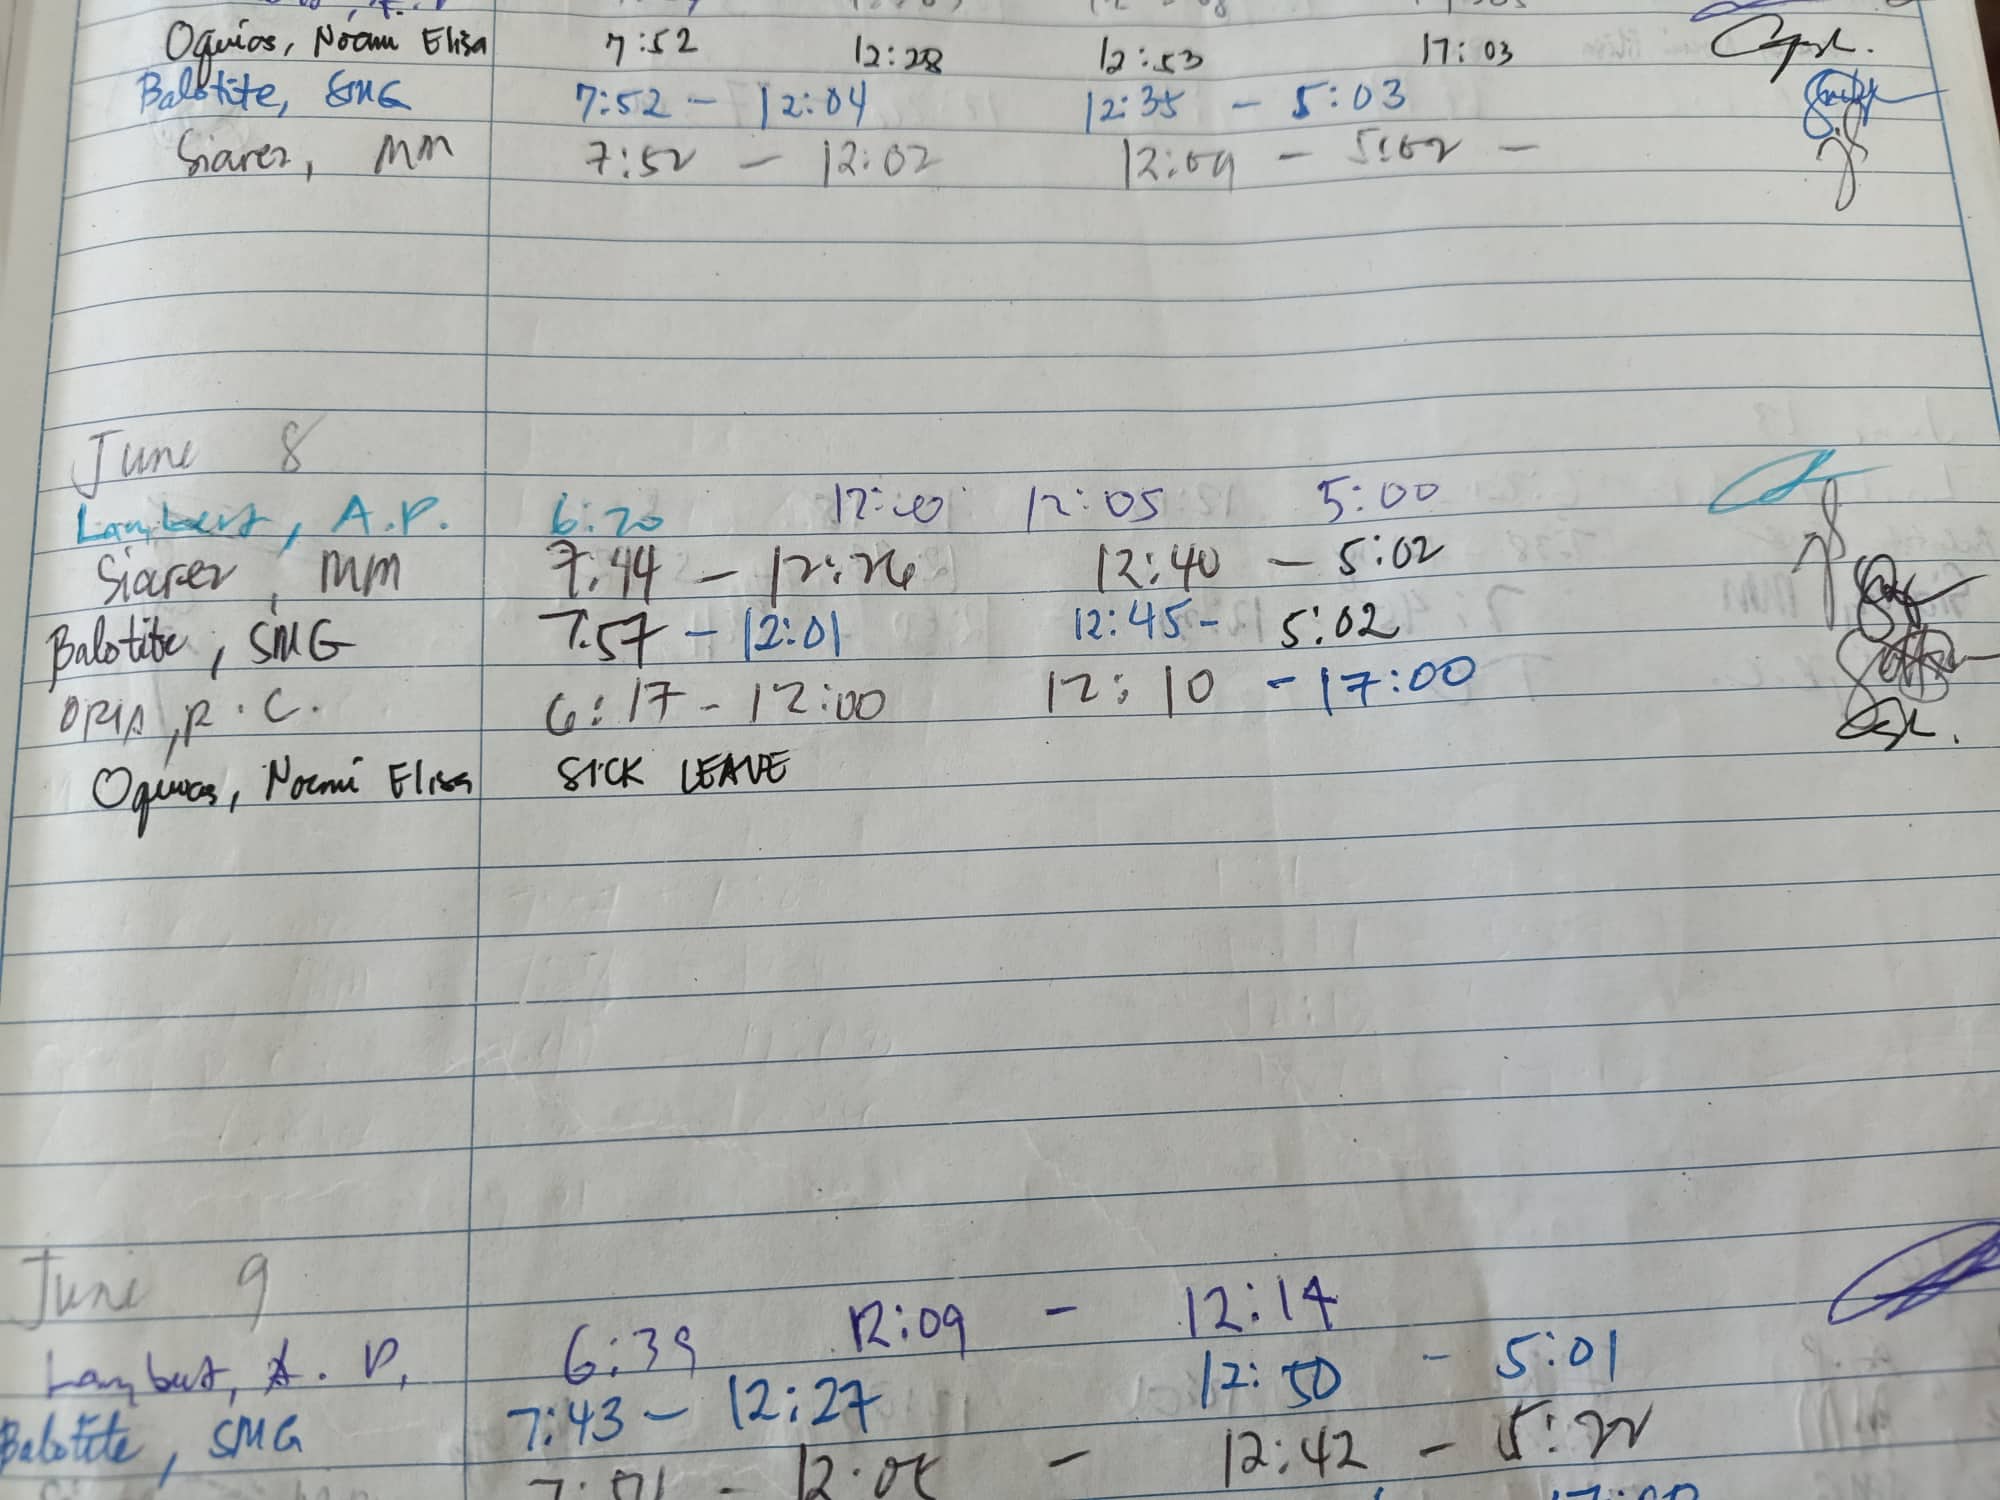 Oquias, Noami Elisa 7:52 12:28 12:53 17:03
Balotite, SMG 7:52 - 12:04 12:35 - 5:03
Siarez, MM 7:52 - 12:02 12:09 - 5:02 -
June 8
Lambert, A.P. 6:20 12:00 12:05 5:00
Siarez, MM 7:44 - 12:26 12:40 - 5:02
Balotite, SMG 7:57 - 12:01 12:45 - 5:02
ORIA, R.C. 6:17 - 12:00 12:10 - 17:00
Oquias, Noemi Elisa SICK LEAVE
June 9
Lambert, A. P. 6:39 12:09 - 12:14
Balotite, SMG 7:43 - 12:27 12:50 - 5:01
- 12:42 - 5:22